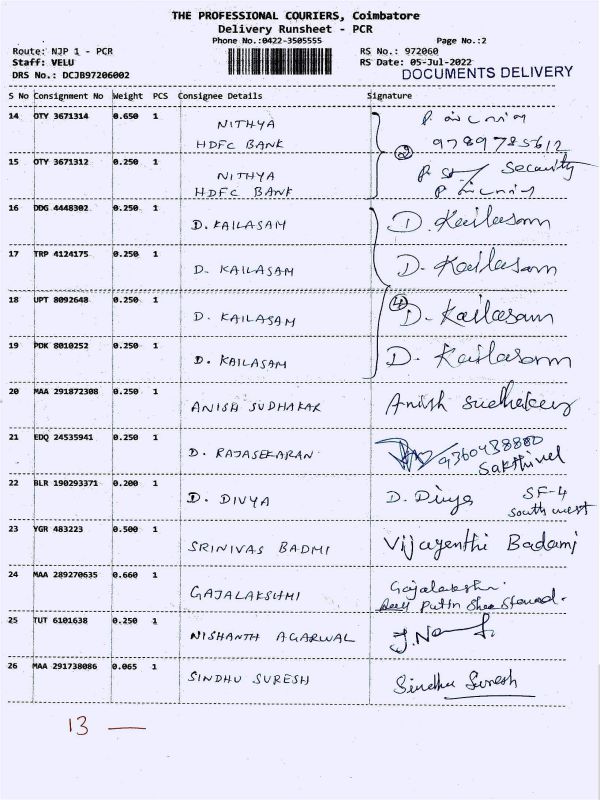 THE PROFESSIONAL COURIERS, Coimbatore
Delivery Runsheet - PCR
Phone No.:0422-3505555 Page No.:2
Route: NJP 1 - PCR RS No.: 972060
Staff: VELU RS Date: 05-Jul-2022
DRS No.: DCJB97206002 DOCUMENTS DELIVERY
S No Consignment No Weight PCS Consignee Details Signature
14 OTY 3671314 0.650 1 NITHYA
HDFC BANK 9789785612
15 OTY 3671312 0.250 1 NITHYA Security
HDFC BANK
16 DDG 4448302 0.250 1 D. KAILASAM D. Kailasam
17 TRP 4124175 0.250 1 D. KAILASAM D. Kailasam
18 UPT 8092648 0.250 1 D. KAILASAM 4 D. Kailasam
19 PDK 8010252 0.250 1 D. KAILASAM D. Kailasam
20 MAA 291872308 0.250 1 ANISH SUDHAKAR Anish
21 EDQ 24535941 0.250 1 D. RAJASEKARAN
Sakthivel
22 BLR 190293371 0.200 1 D. DIVYA D. Divya SF-4
South west
23 YGR 483223 0.500 1 SRINIVAS BADMI Vijayenthi Badami
24 MAA 289270635 0.660 1 GAJALAKSHMI
25 TUT 6101638 0.250 1 NISHANTH AGARWAL
26 MAA 291738086 0.065 1 SINDHU SURESH Sindhu Suresh
13 —